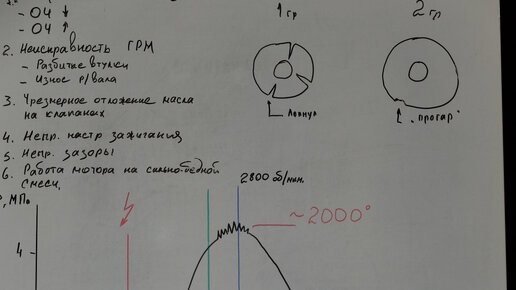 - ОЧ ↓
- ОЧ ↑
2. Неисправность ГРМ
- Разбитые втулки
- Износ р/вала
3. Чрезмерное отложение масла
на клапанах
4. Непр. настр зажигания
5. Непр. зазоры
6. Работа мотора на сильно-бедной
смеси,
1 гр
Лопнул
2 гр
"прогар"
P, МПа
4
2800 об/мин.
~2000°